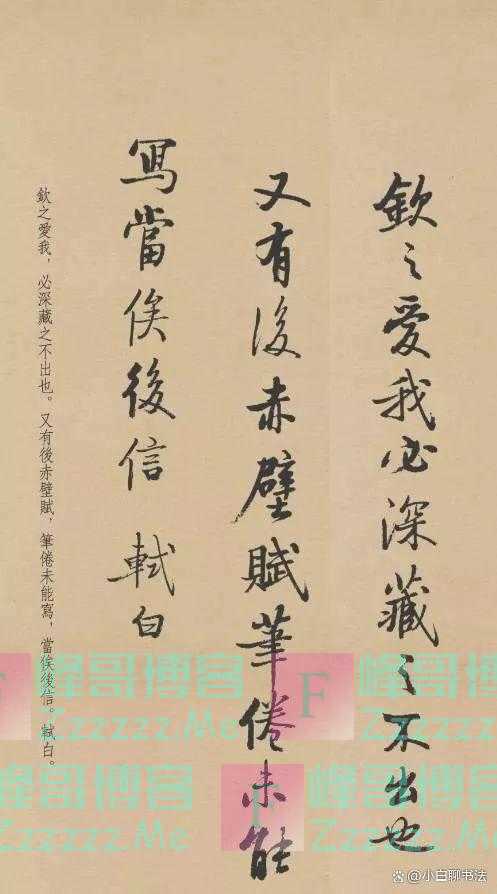 欽之愛我必深藏之不出也
又有後赤壁賦筆倦未能
寫當俟後信 軾白
欽之愛我，必深藏之不出也。又有後赤壁賦，筆倦未能寫，當俟後信。軾白。
峰哥博客
Zzzzzz.Me
F
峰哥博客
Zzzzzz.Me
峰哥博客
Zzzzzz.Me
F
峰哥博客
Zzzzzz.Me
@小白聊书法